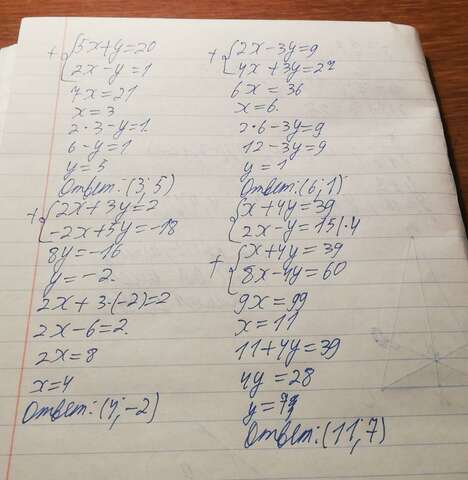 + {5x+y=20
2x-y=1
7x=21
x=3
2·3-y=1
6-y=1
y=5
Ответ: (3; 5)
+ {2x+3y=2
-2x+5y=-18
8y=-16
y=-2.
2x+3·(-2)=2
2x-6=2.
2x=8
x=4
Ответ: (4; -2)
+ {2x-3y=9
4x+3y=27
6x=36
x=6.
2·6-3y=9
12-3y=9
y=1
Ответ: (6; 1)
{x+4y=39
2x-y=15|·4
+ {x+4y=39
8x-4y=60
9x=99
x=11
11+4y=39
4y=28
y=7
Ответ: (11; 7)